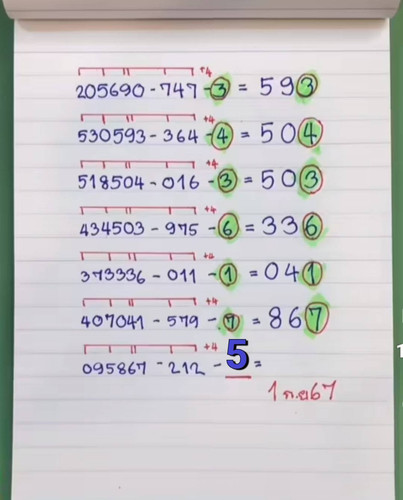 +4
205690 - 747 - 3 = 593
+4
530593 - 364 - 4 = 504
+4
518504 - 016 - 3 = 503
+4
434503 - 975 - 6 = 336
+4
373336 - 011 - 1 = 041
+4
407041 - 579 - 7 = 867
+4
095867 - 212 - 5 =
1 ก.ย 67